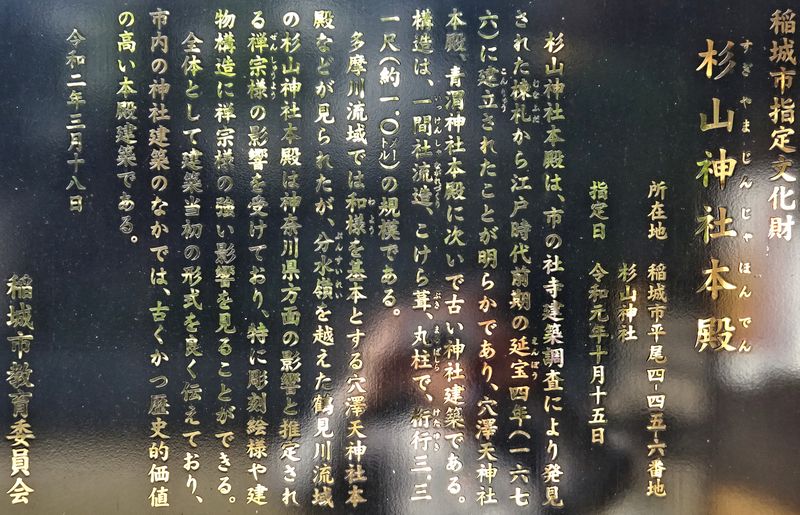 稲城市指定文化財
杉山神社本殿
すぎやまじんじゃほんでん
所在地 稲城市平尾四-四五-六番地
杉山神社
指定日 令和元年十月十五日
杉山神社本殿は、市の社寺建築調査により発見
された棟札から江戸時代前期の延宝四年(一六七
六)に建立されたことが明らかであり、穴澤天神社
本殿、青渭神社本殿に次いで古い神社建築である。
構造は、一間社流造、こけら葺、丸柱で、桁行三.三
一尺(約一.〇㍍)の規模である。
多摩川流域では和様を基本とする穴澤天神社本
殿などが見られたが、分水領を越えた鶴見川流域
の杉山神社本殿は神奈川県方面の影響と推定され
る禅宗様の影響を受けており、特に彫刻絵様や建
物構造に禅宗様の強い影響を見ることができる。
全体として建築当初の形式を良く伝えており、
市内の神社建築のなかでは、古くかつ歴史的価値
の高い本殿建築である。
令和二年三月十八日
稲城市教育委員会